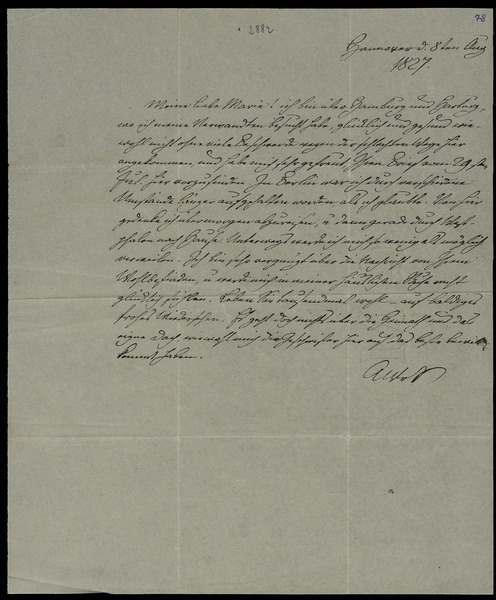 78
2882
Hannover d. 8ten Aug
1827.
Meine liebe Marie! ich bin über Hamburg und Harburg,
wo ich meine Verwandten besucht habe, glücklich und gesund wie-
wohl nicht ohne viele Beschwerde wegen der schlechten Wege hier
angekommen, und habe mich sehr gefreut Ihren Brief vom 29sten
Jul. hier vorzufinden. In Berlin war ich durch verschiedene
Umstände länger aufgehalten worden als ich glaubte. Von hier
gedenke ich übermorgen abzureisen, u dann gerade durch West-
phalen nach Hause. Unterwegs werde ich mich so wenig als möglich
verweilen. Ich bin sehr vergnügt über die Nachricht von Ihrem
Wohlbefinden, u werde mich in meiner häuslichen Ruhe recht
glücklich fühlen. Leben Sie tausendmal wohl auf baldiges
frohes Wiedersehen. Es geht doch nichts über die Heimath und das
eigne Dach, wiewohl mich die Geschwister hier auf das beste bewill-
kommt haben.
AWvS